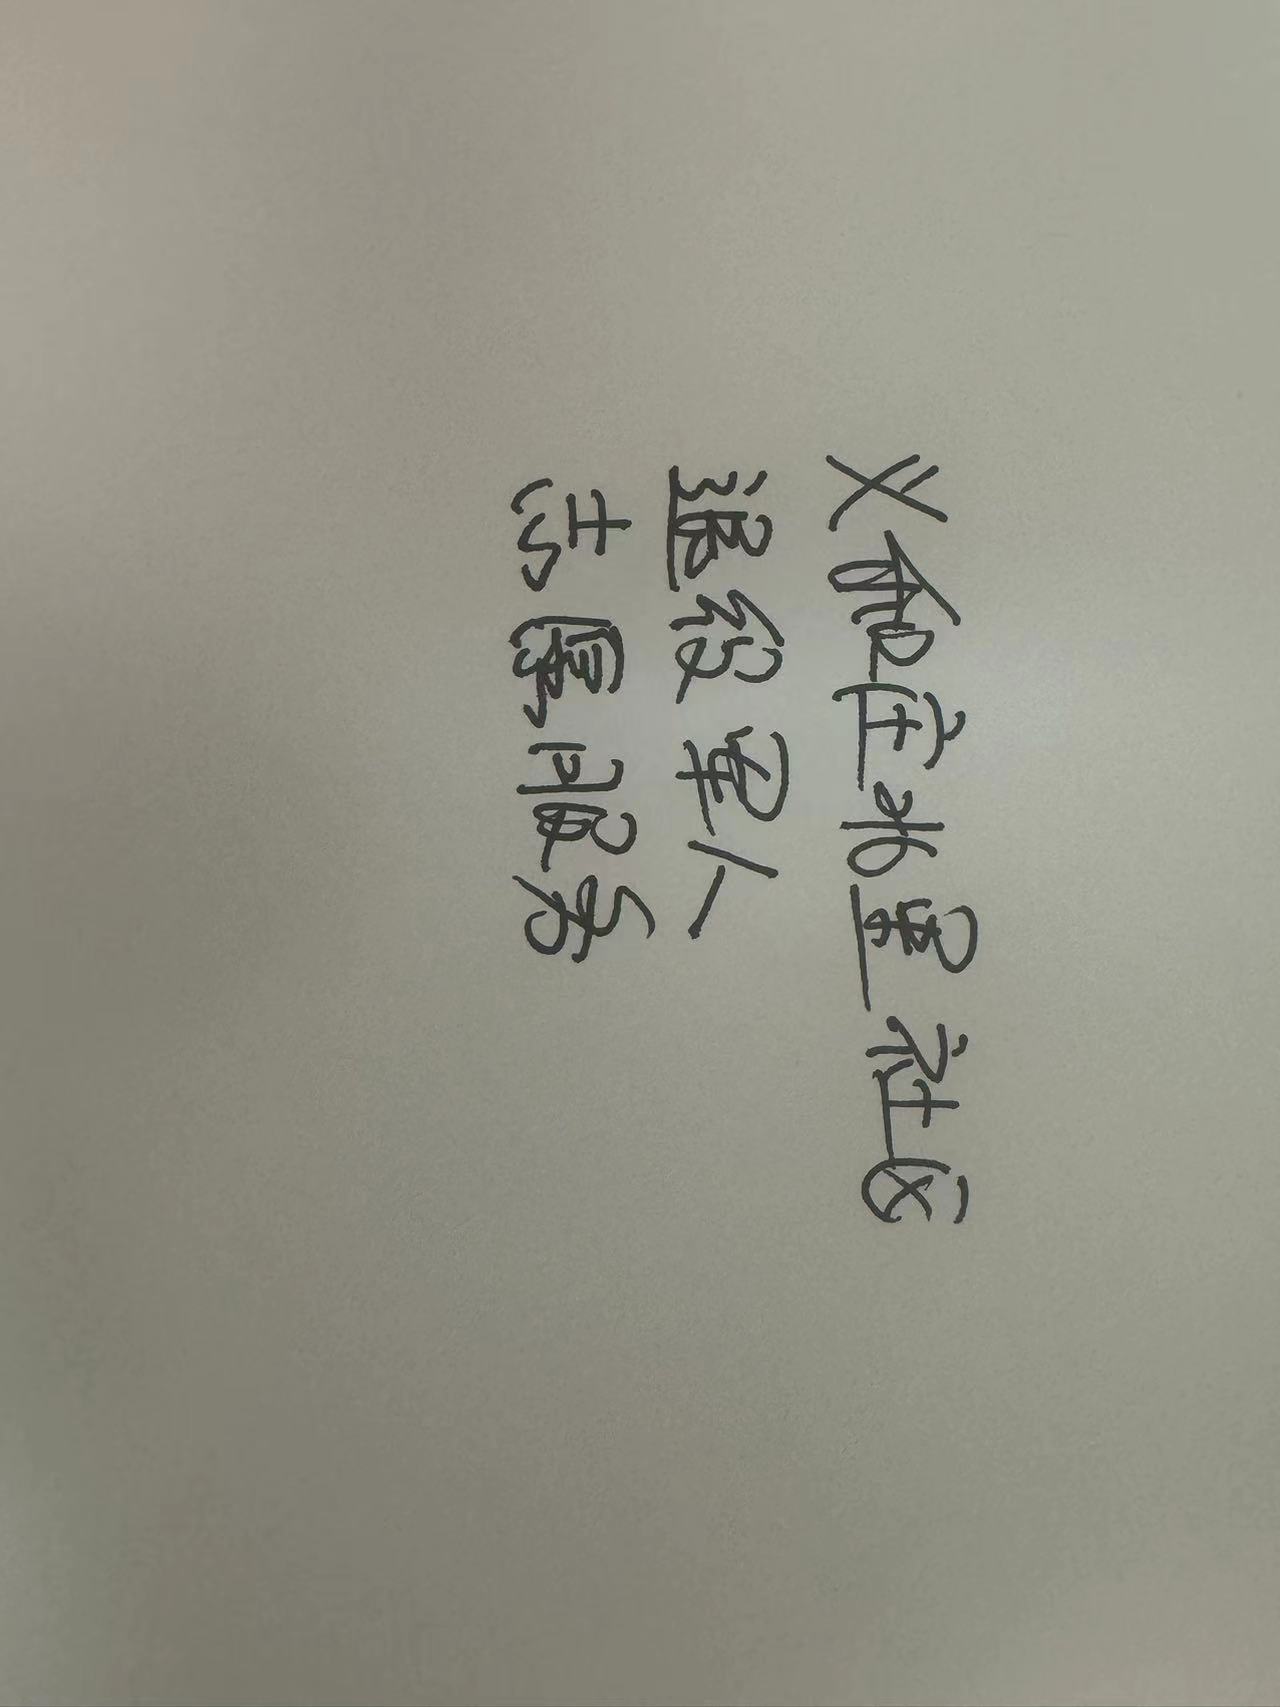 义和庄北里社区
退役军人
志愿服务